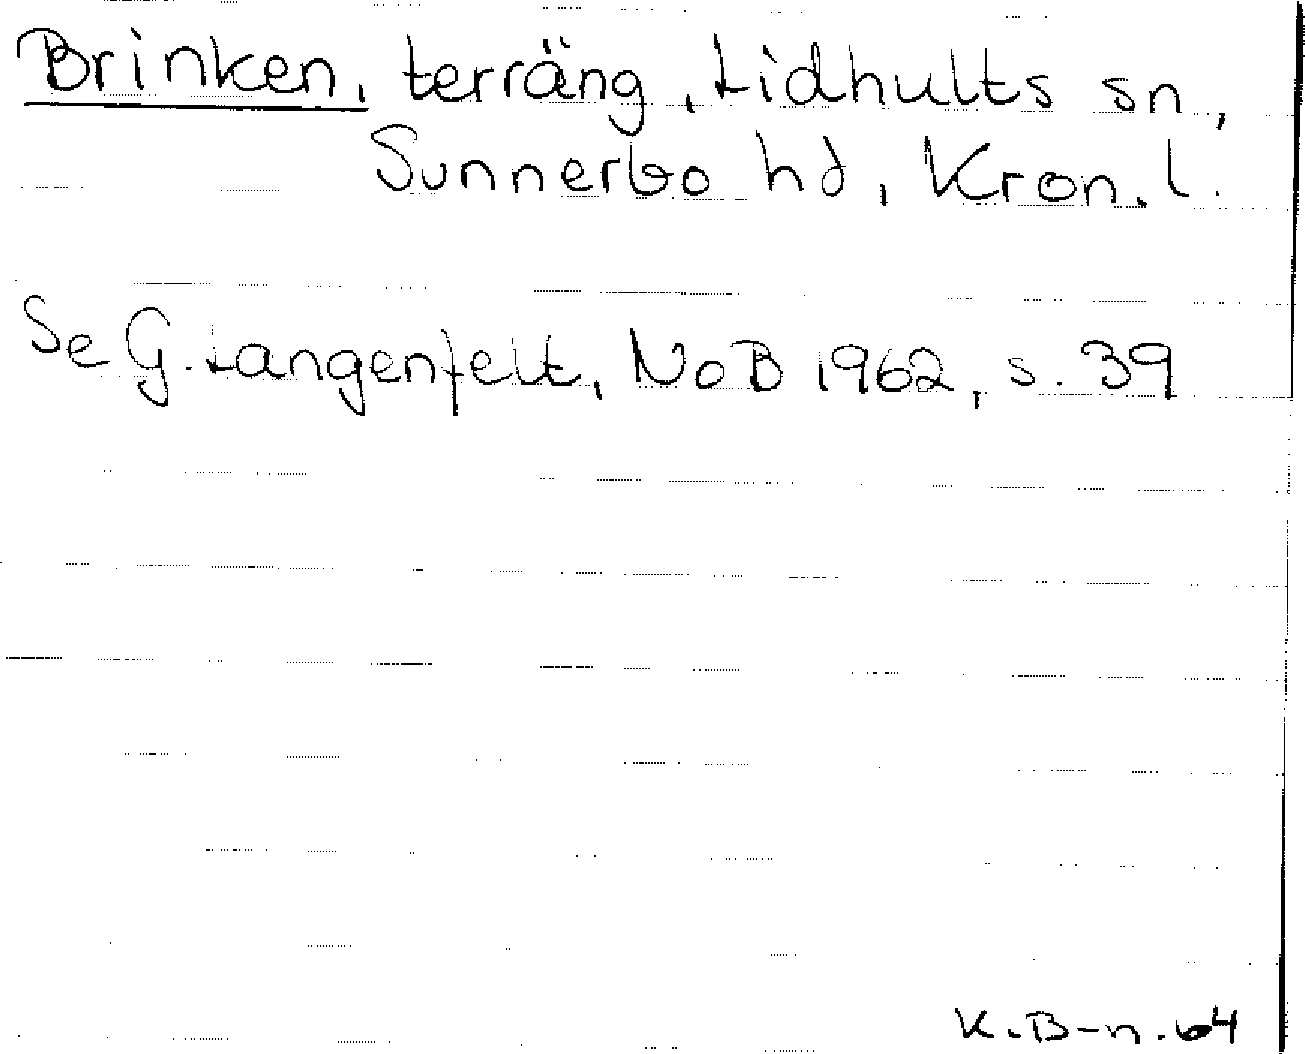 Brinken, terräng, Lidhults sn,
Sunnerbo hd, Kron. l.
Se G. Langenfelt, NoB 1962, s. 39
K. B-n. 64